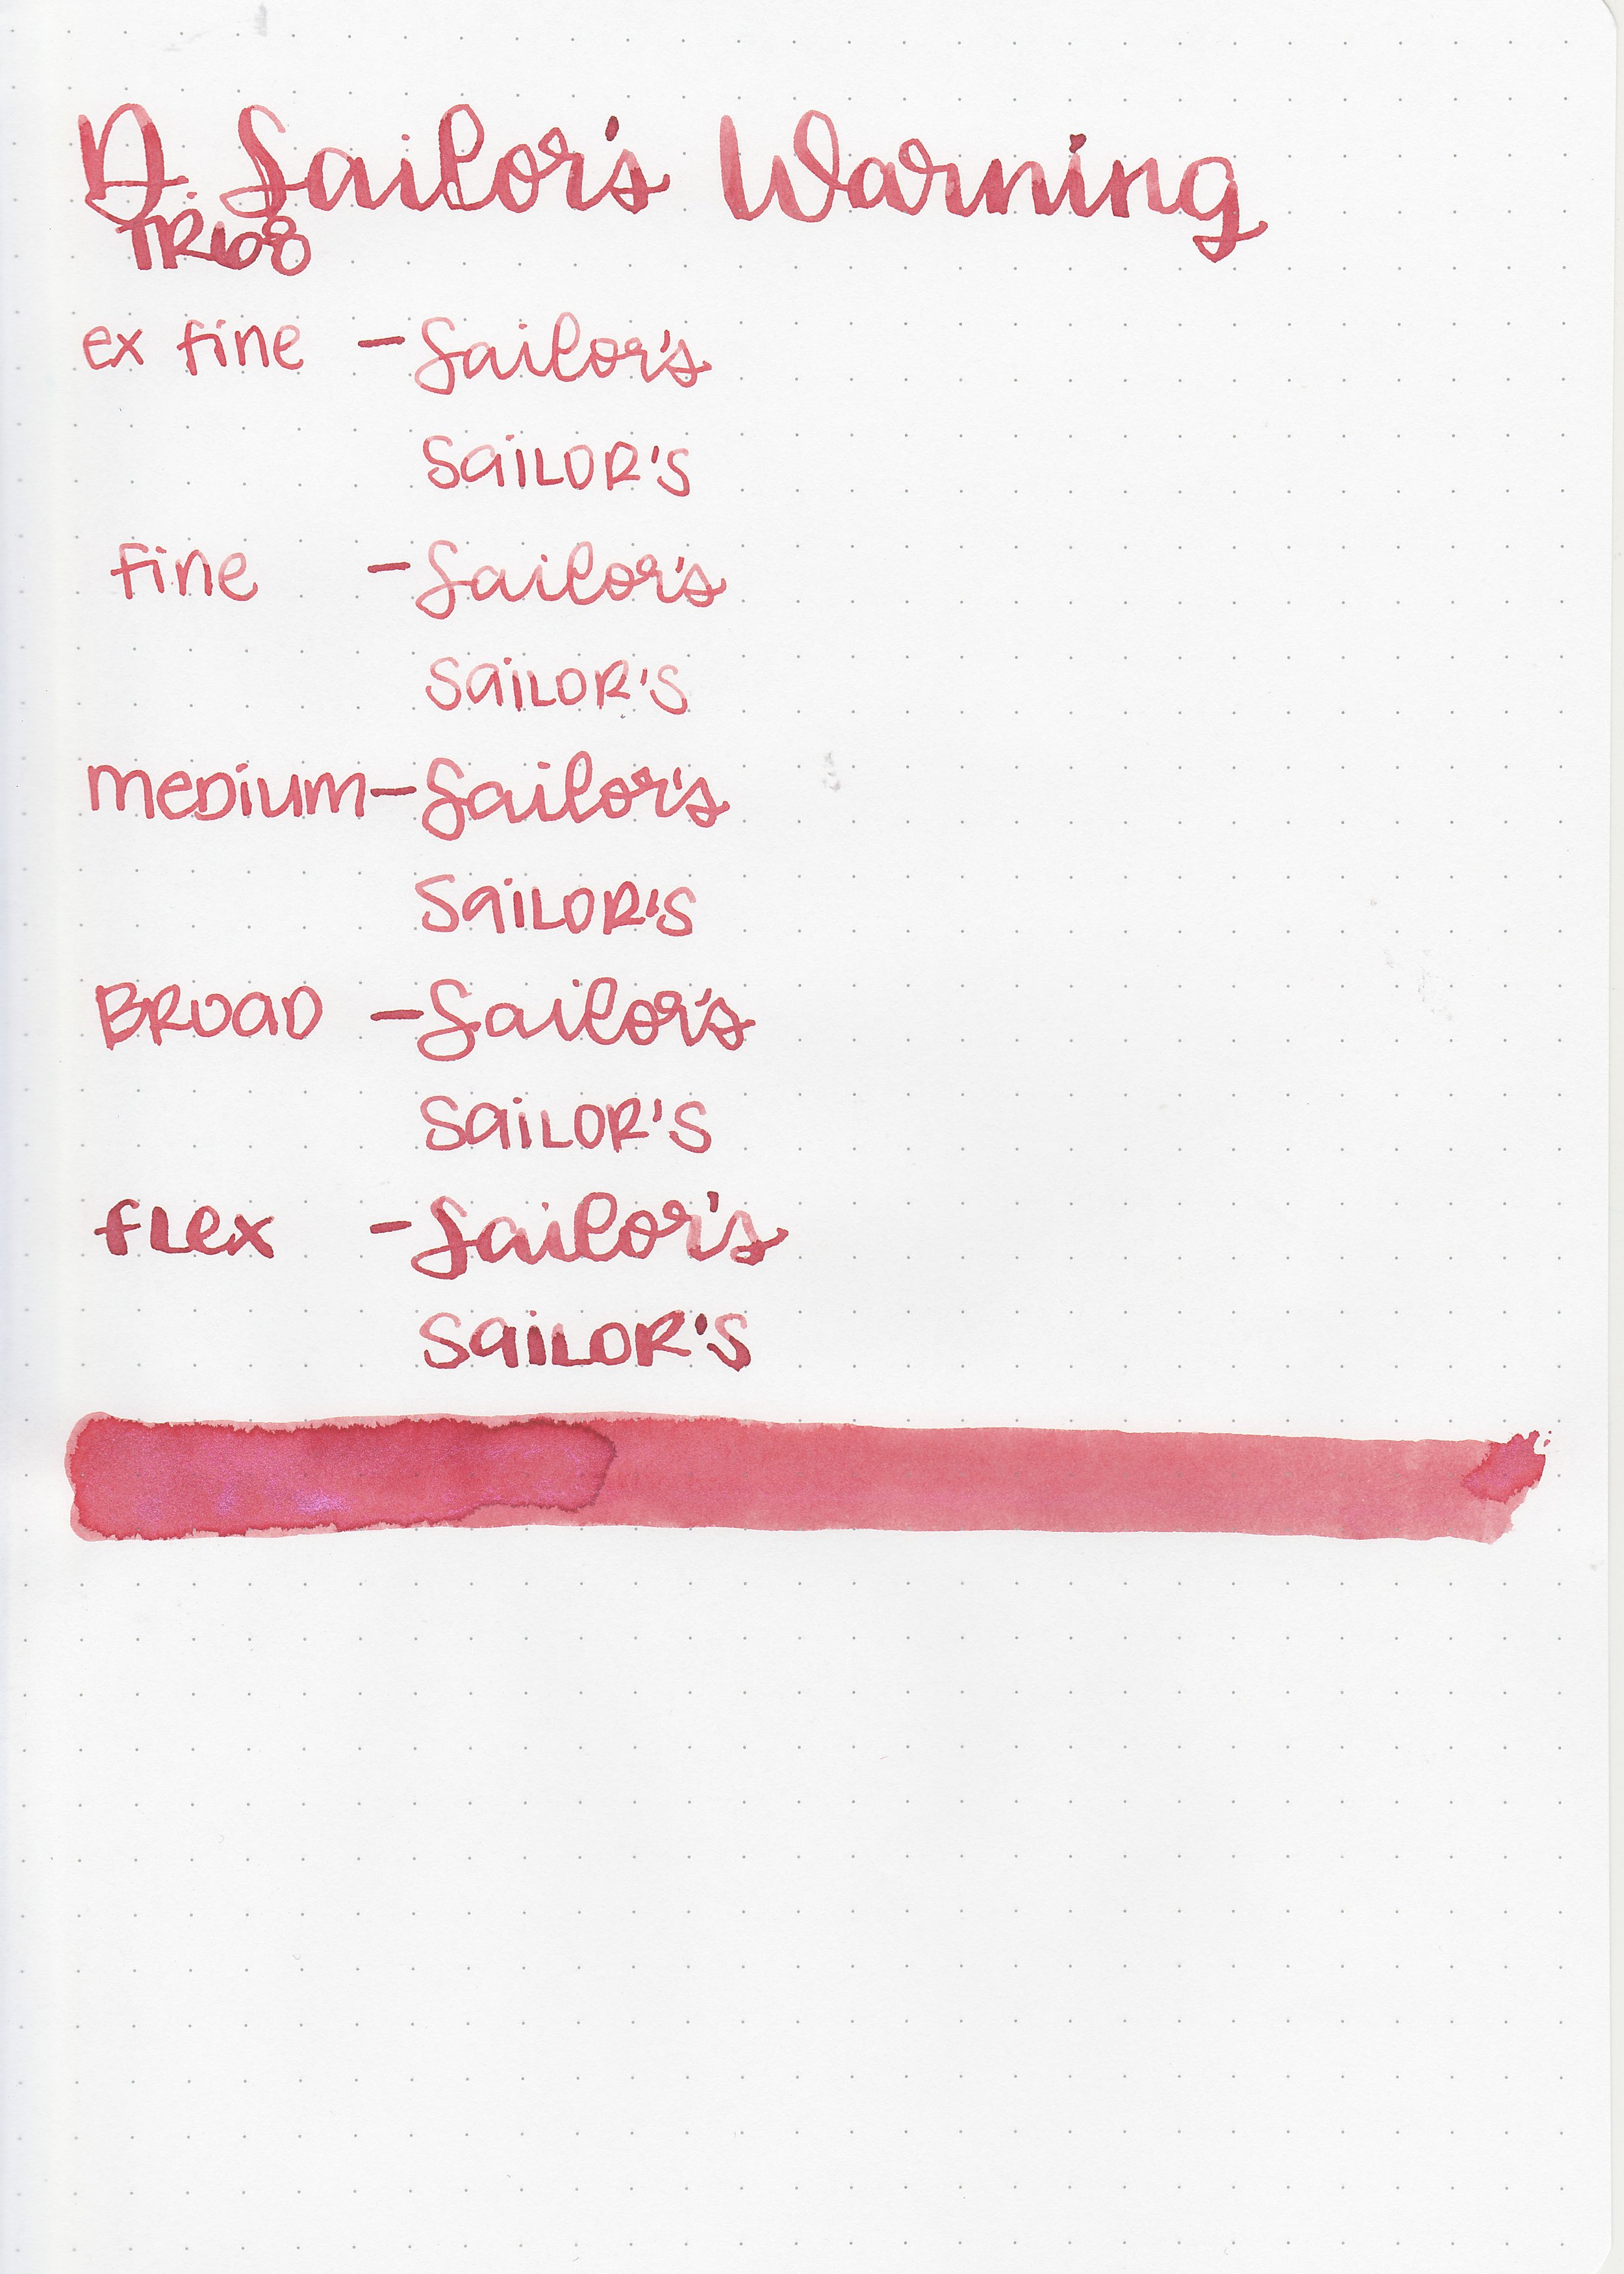 D. Sailor's Warning
TR68
ex fine - Sailor's
SaiLOR'S
fine - Sailor's
SaiLOR'S
meDium - Sailor's
SaiLOR'S
BROaD - Sailor's
SaiLOR'S
fLex - Sailor's
SaiLOR'S